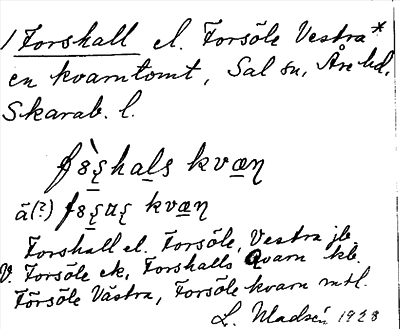 1 Forshall el. Forsöle Vestra*
en kvarntomt, Sal sn, Åse hd,
Skarab. l.
kvæn
ä(?) kvæn
Forshall el. Forsöle, Vestra jb,
V. Forsöle ek, Forshalls Qvarn kb.
Försöle Västra, Forsöle kvarn mtl.
L. Madsén 1928